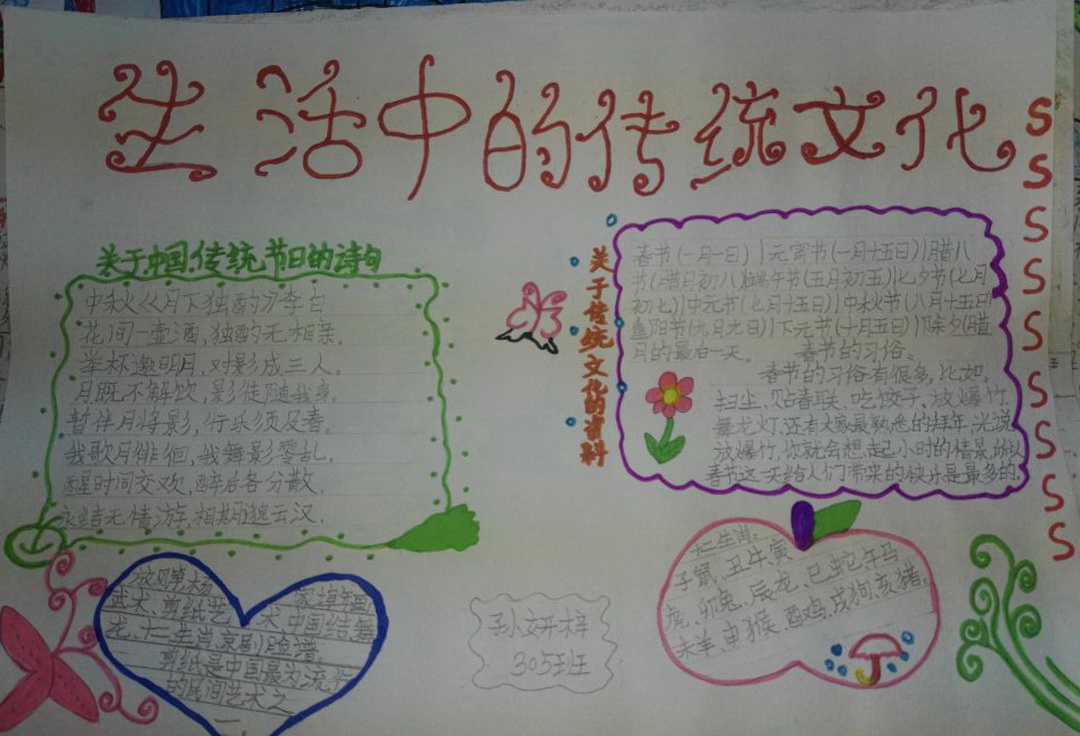 生活中的传统文化
S
S
S
S
S
S
S
S
S
关于中国传统节日的诗句
中秋《月下独酌》李白
花间一壶酒,独酌无相亲。
举杯邀明月,对影成三人。
月既不解饮,影徒随我身。
暂伴月将影,行乐须及春。
我歌月徘徊,我舞影零乱。
醒时同交欢,醉后各分散。
永结无情游,相期邈云汉。
关于传统文化的资料
春节(一月一日)|元宵节(一月十五日)|腊八
节(腊月初八)|端午节(五月初五)|七夕节(七月
初七)|中元节(七月十五日)|中秋节(八月十五日)
重阳节(九日九日)|下元节(十月五日)|除夕(腊
月的最后一天。 春节的习俗。
春节的习俗有很多,比如。
扫尘、贴春联、吃饺子、放爆竹、
舞龙灯,还有大家最熟悉的拜年,光说
放爆竹,你就会想起小时的情景,所以
春节这一天给人们带来的快乐是最多的。
武术、剪纸艺术,中国结、舞
龙、十二生肖,京剧脸谱。
剪纸是中国最为流行
的民间艺术之
一
孙妍梓
305班
十二生肖:
子鼠、丑牛寅
虎、卯兔、辰龙、巳蛇午马
未羊、申猴、酉鸡、戌狗、亥猪。